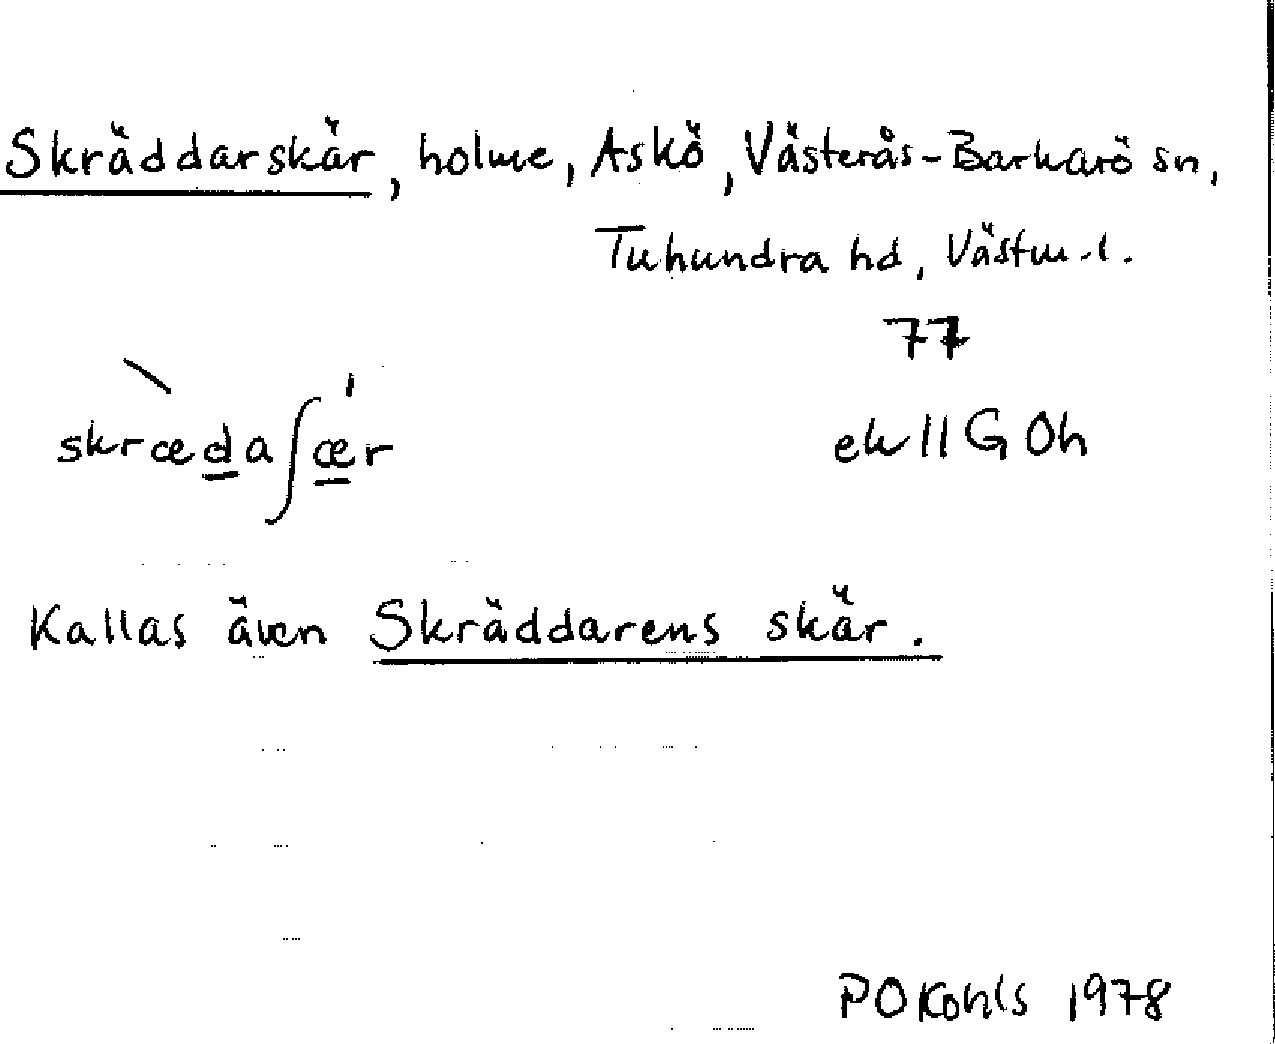 Skräddarskär, holme, Askö, Västerås-Barkarö sn,
Tuhundra hd, Västm.l.
77
skrædaʃær
ek 11G Oh
Kallas även Skräddarens skär.
P O Kohls 1978